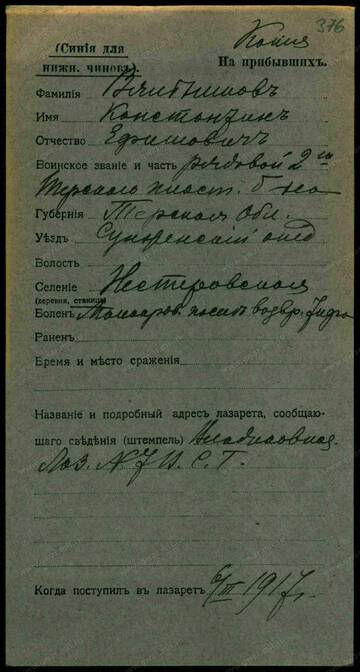 376
Копия
(Синія для
нижн. чиновъ).
На прибывшихъ.
Фамилія
Имя Константинъ
Отчество Ефимовичъ
Воинское званіе и часть рядовой 2го
Терскаго пласт. б-на
Губернія Терская Обл.
Уѣздъ Сунженскій отд
Волость
Селеніе Нестеровская
(деревня, станица)
Боленъ
Раненъ
Время и мѣсто сраженія
Названіе и подробный адресъ лазарета, сообщаю-
щаго свѣдѣнія (штемпель) Владикавказ.
Лаз. № 7 В. С. Г.
Когда поступилъ въ лазаретъ 6/III 1917